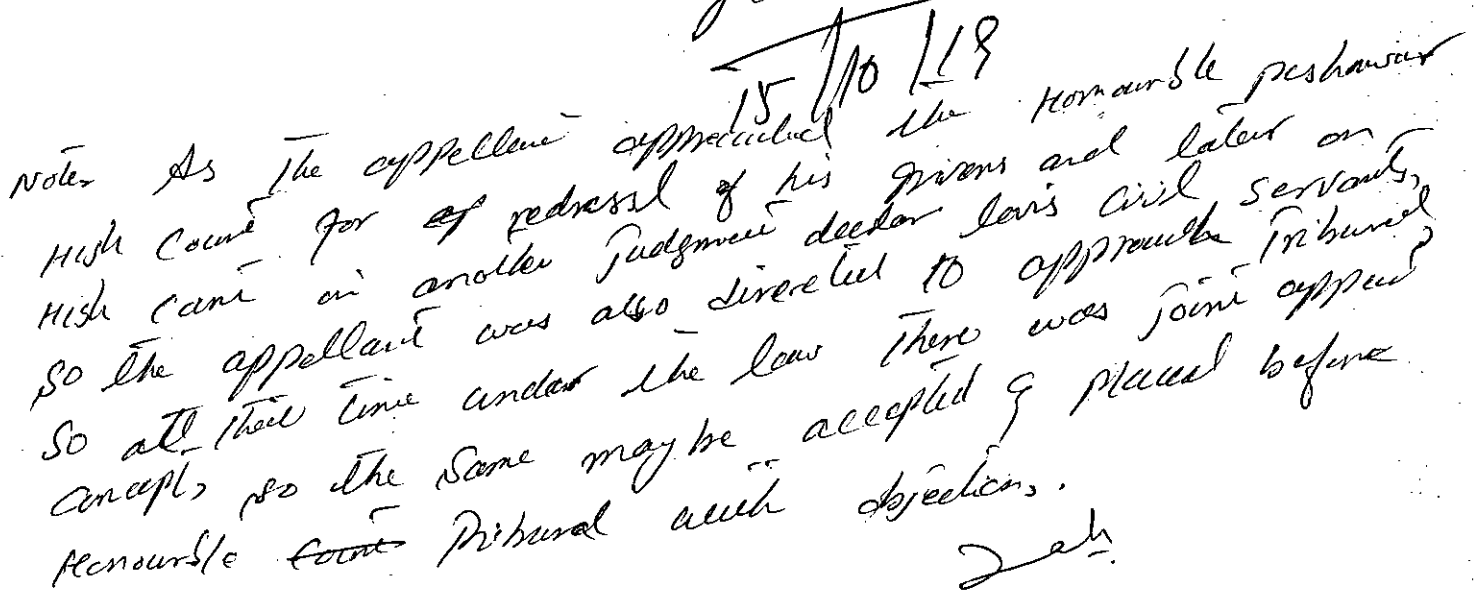 15/10/19
Note:- As the appellant approached the Honourable Peshawar
High Court for of redressal of his grivens and later on
High Court in another Judgment declar levis Civil Servants,
So the appellant was also directed to approach Tribunal,
So at that time under the law there was joint appeal
concept, so the same may be accepted & placed before
Honourable Court Tribunal with objections.